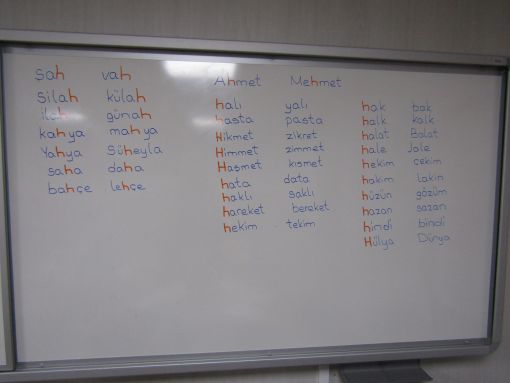 şah vah
silah külah
ilah günah
kahya mahya
Yahya Süheyla
saha daha
bahçe lehçe
Ahmet Mehmet
halı yalı
hasta pasta
Hikmet zikret
Himmet zimmet
Haşmet kısmet
hata data
haklı saklı
hareket bereket
hekim tekim
hak bak
halk kalk
halat Balat
hale Jale
hekim çekim
hakim lakin
hüzün gözüm
hazan sazan
hindi bindi
Hülya Dünya